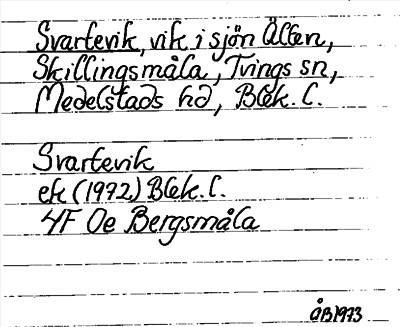 Svartevik, vik i sjön Älten,
Skillingsmåla, Tvings sn,
Medelstads hd, Blek. l.
Svartevik
ek (1972) Blek. l.
4F Oe Bergsmåla
ÅB1973